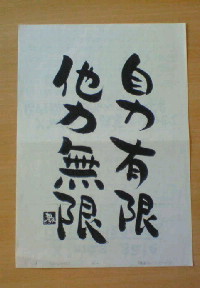 自力有限
他力無限